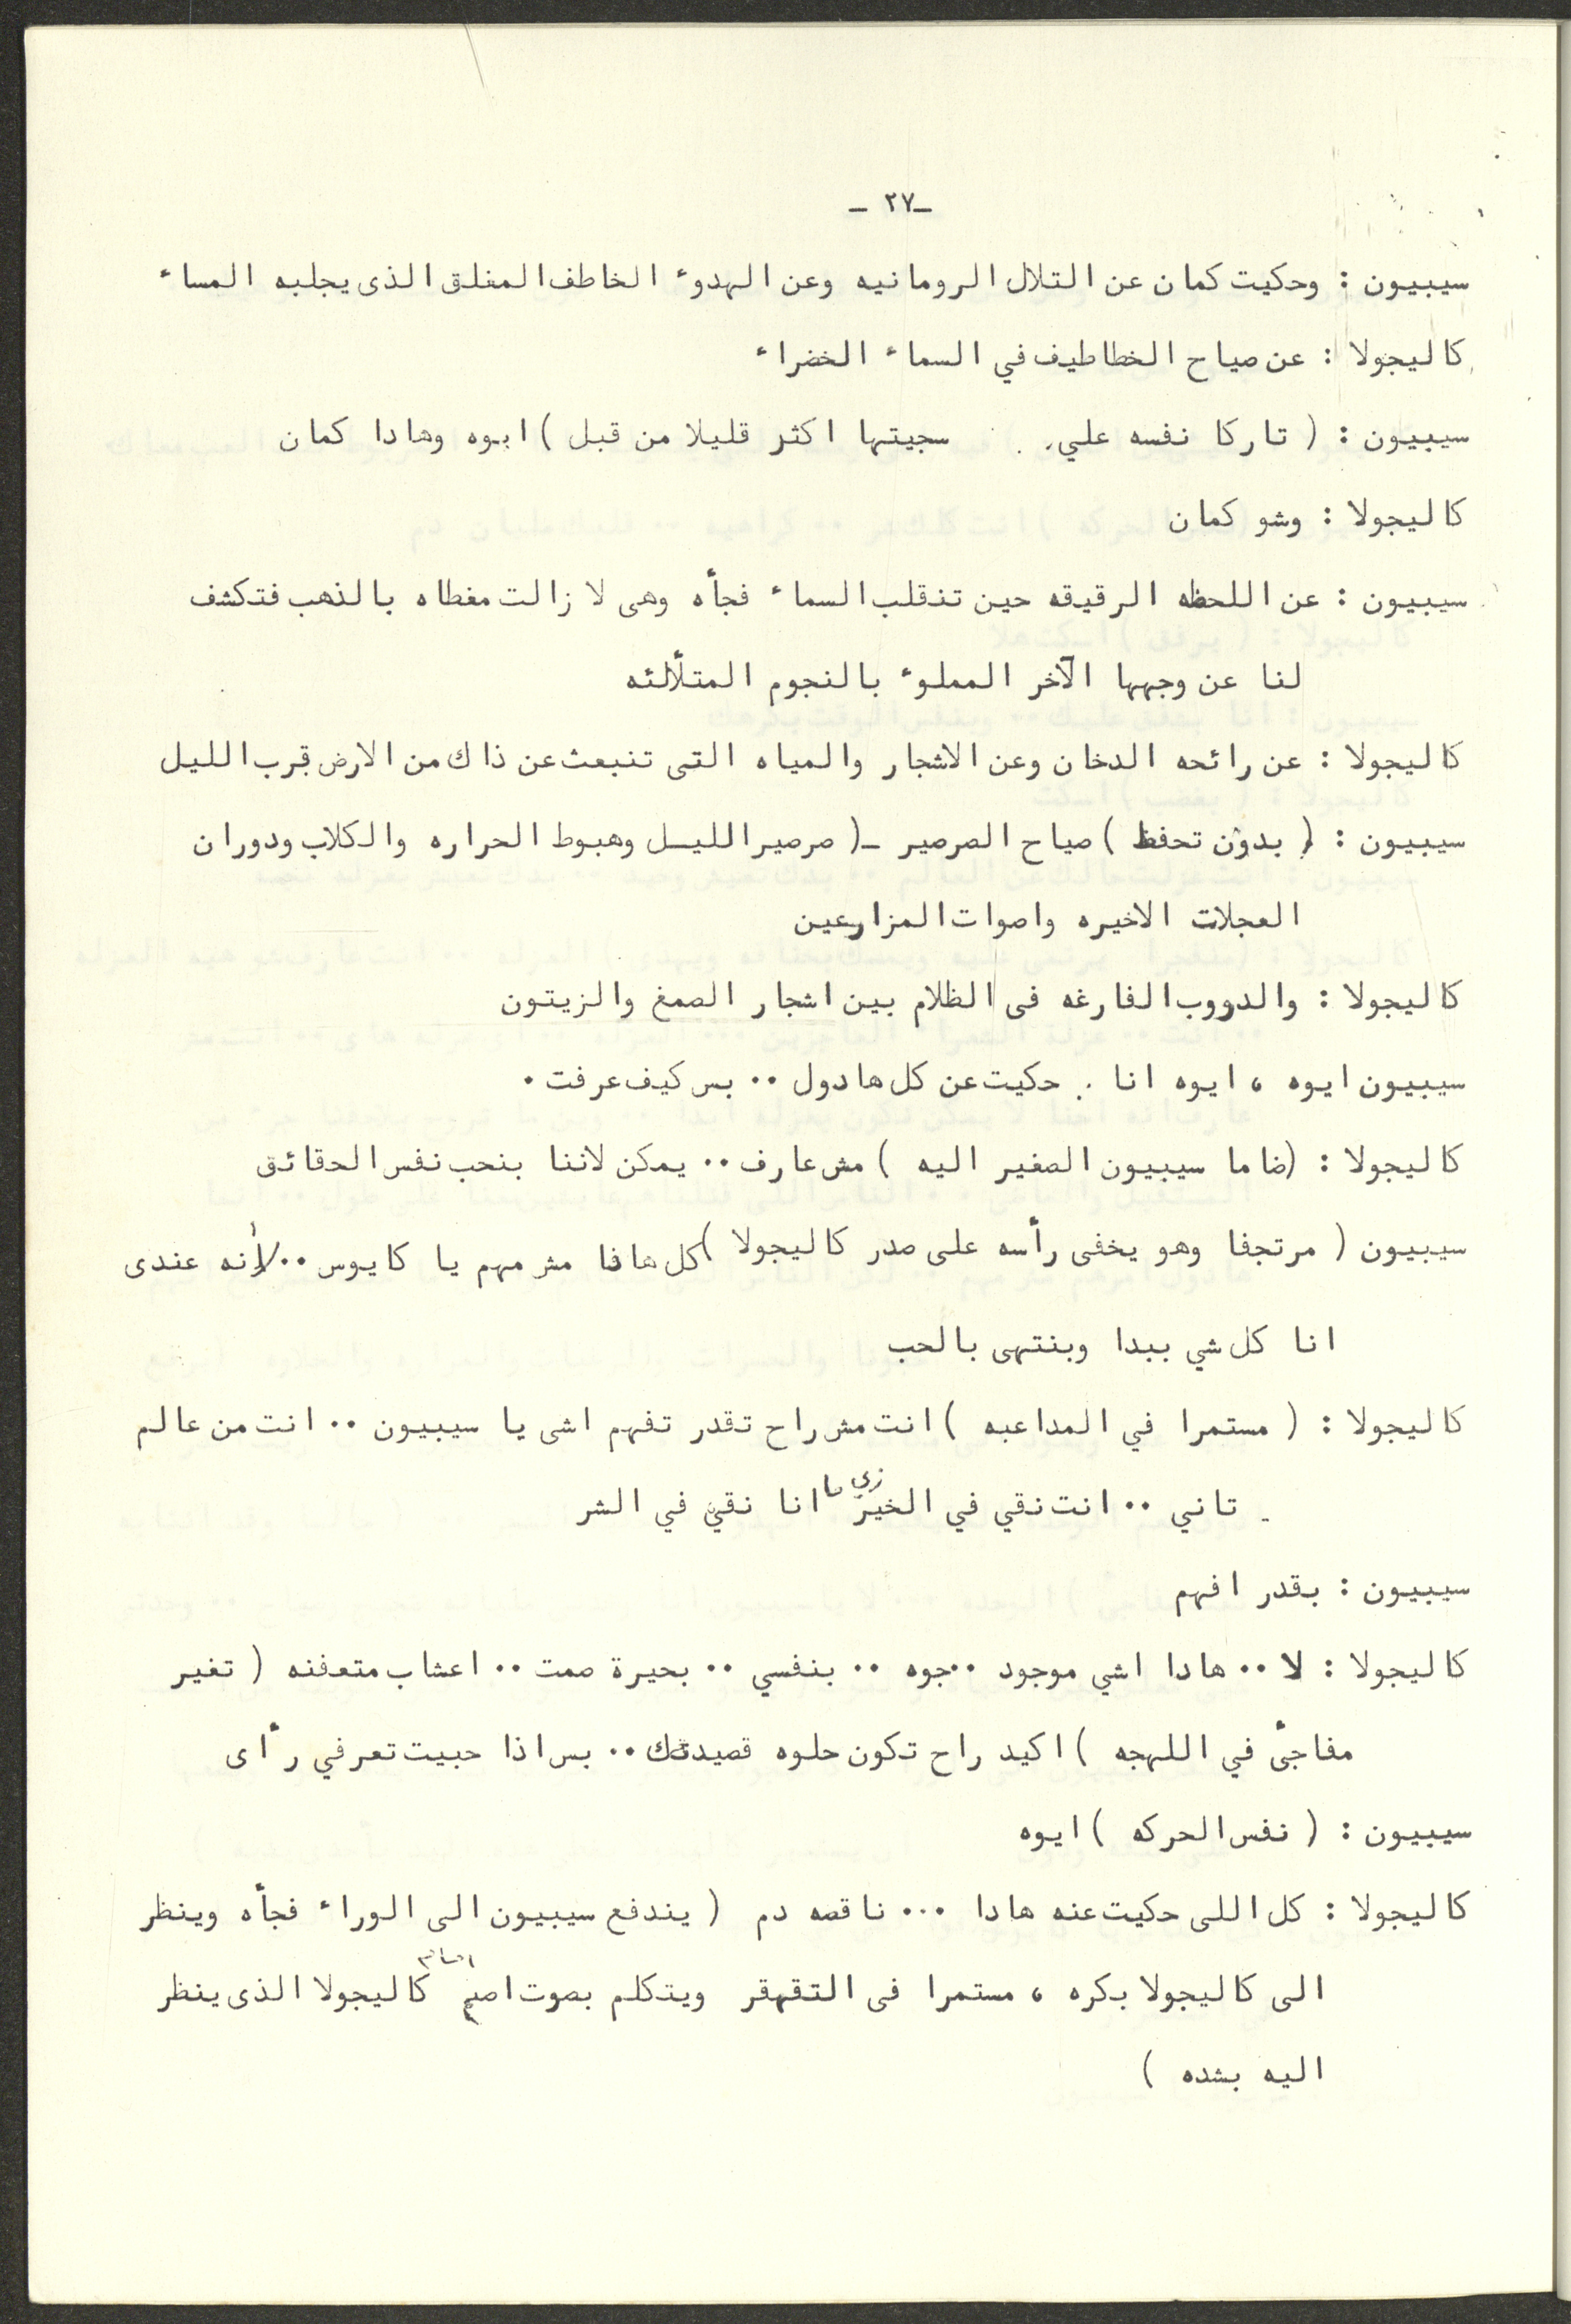 ـ٢٧ ـ
سيبيون : وحكيت كمان عن التلال الرومانيه وعن الهدوء الخاطف المغلق الذى يجلبه المساء
كاليجولا : عن صياح الخطاطيف في السماء الخضراء
سيبيون : ( تاركا نفسه علي سجيتها اكثر قليلا من قبل ) ايوه وهادا كمان
كاليجولا : وشو كمان
سيبيون : عن اللحظه الرقيقه حين تنقلب السماء فجأه وهى لا زالت مغطاه بالذهب فتكشف
لنا عن وجهها الآخر المملوء بالنجوم المتلألئه
كاليجولا : عن رائحه الدخان وعن الاشجار والمياه التى تنبعث عن ذاك من الارض قرب الليل
سيبيون : ( بدون تحفظ ) صياح الصرصير ـ( صرصير الليل وهبوط الحراره والكلاب ودوران
العجلات الاخيره واصوات المزارعين
كاليجولا : والدروب الفارغه فى الظلام بين اشجار الصمغ والزيتون
سيبيون ايوه ، ايوه انا . حكيت عن كل هادول .. بس كيف عرفت .
كاليجولا : (ضاما سيبيون الصغير اليه ) مش عارف .. يمكن لاننا بنحب نفس الحقائق
سيبيون ( مرتجفا وهو يخفى رأسه على صدر كاليجولا ) كل هادا مش مهم يا كايوس .. لأنه عندى
انا كل شي ببدا وبنتهى بالحب
كاليجولا : ( مستمرا في المداعبه ) انت مش راح تقدر تفهم اشى يا سيبيون .. انت من عالم
تاني .. انت نقي في الخير زي ما انا نقي في الشر
سيبيون : بقدر افهم
كاليجولا : لا .. هادا اشي موجود .. جوه .. بنفسي .. بحيرة صمت .. اعشاب متعفنه ( تغير
مفاجئ في اللهجه ) اكيد راح تكون حلوه قصيدتك .. بس اذا حبيت تعرفي رأى
سيبيون : ( نفس الحركه ) ايوه
كاليجولا : كل اللى حكيت عنه هادا ... ناقصه دم ( يندفع سيبيون الى الوراء فجأه وينظر
الى كاليجولا بكره ، مستمرا فى التقهقر ويتكلم بصوت اصم امام كاليجولا الذى ينظر
اليه بشده )